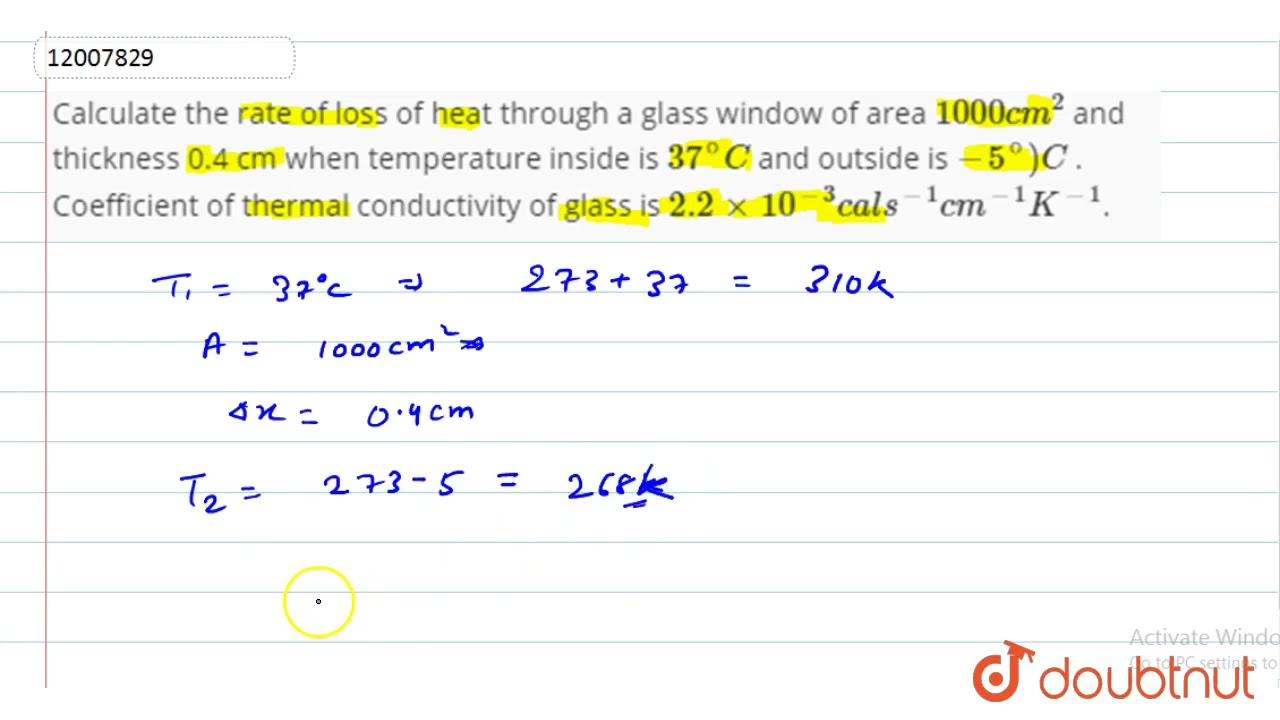 12007829
Calculate the rate of loss of heat through a glass window of area 1000cm² and
thickness 0.4 cm when temperature inside is 37°C and outside is −5°)C .
Coefficient of thermal conductivity of glass is 2.2 × 10⁻³cals⁻¹cm⁻¹K⁻¹.
T₁ = 37°C ⇒ 273 + 37 = 310k
A = 1000cm²
Δx = 0.4cm
T₂ = 273 - 5 = 268k
Activate Windo
Go to PC settings to
doubtnut